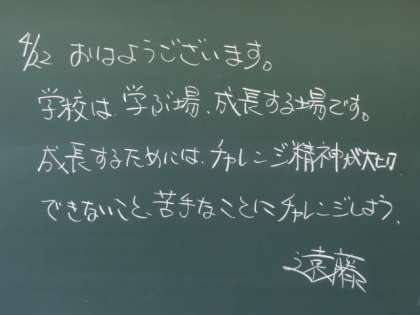 4/22 おはようございます。
学校は、学ぶ場、成長する場です。
成長するためには、チャレンジ精神が大切
できないこと、苦手なことにチャレンジしよう。
遠藤